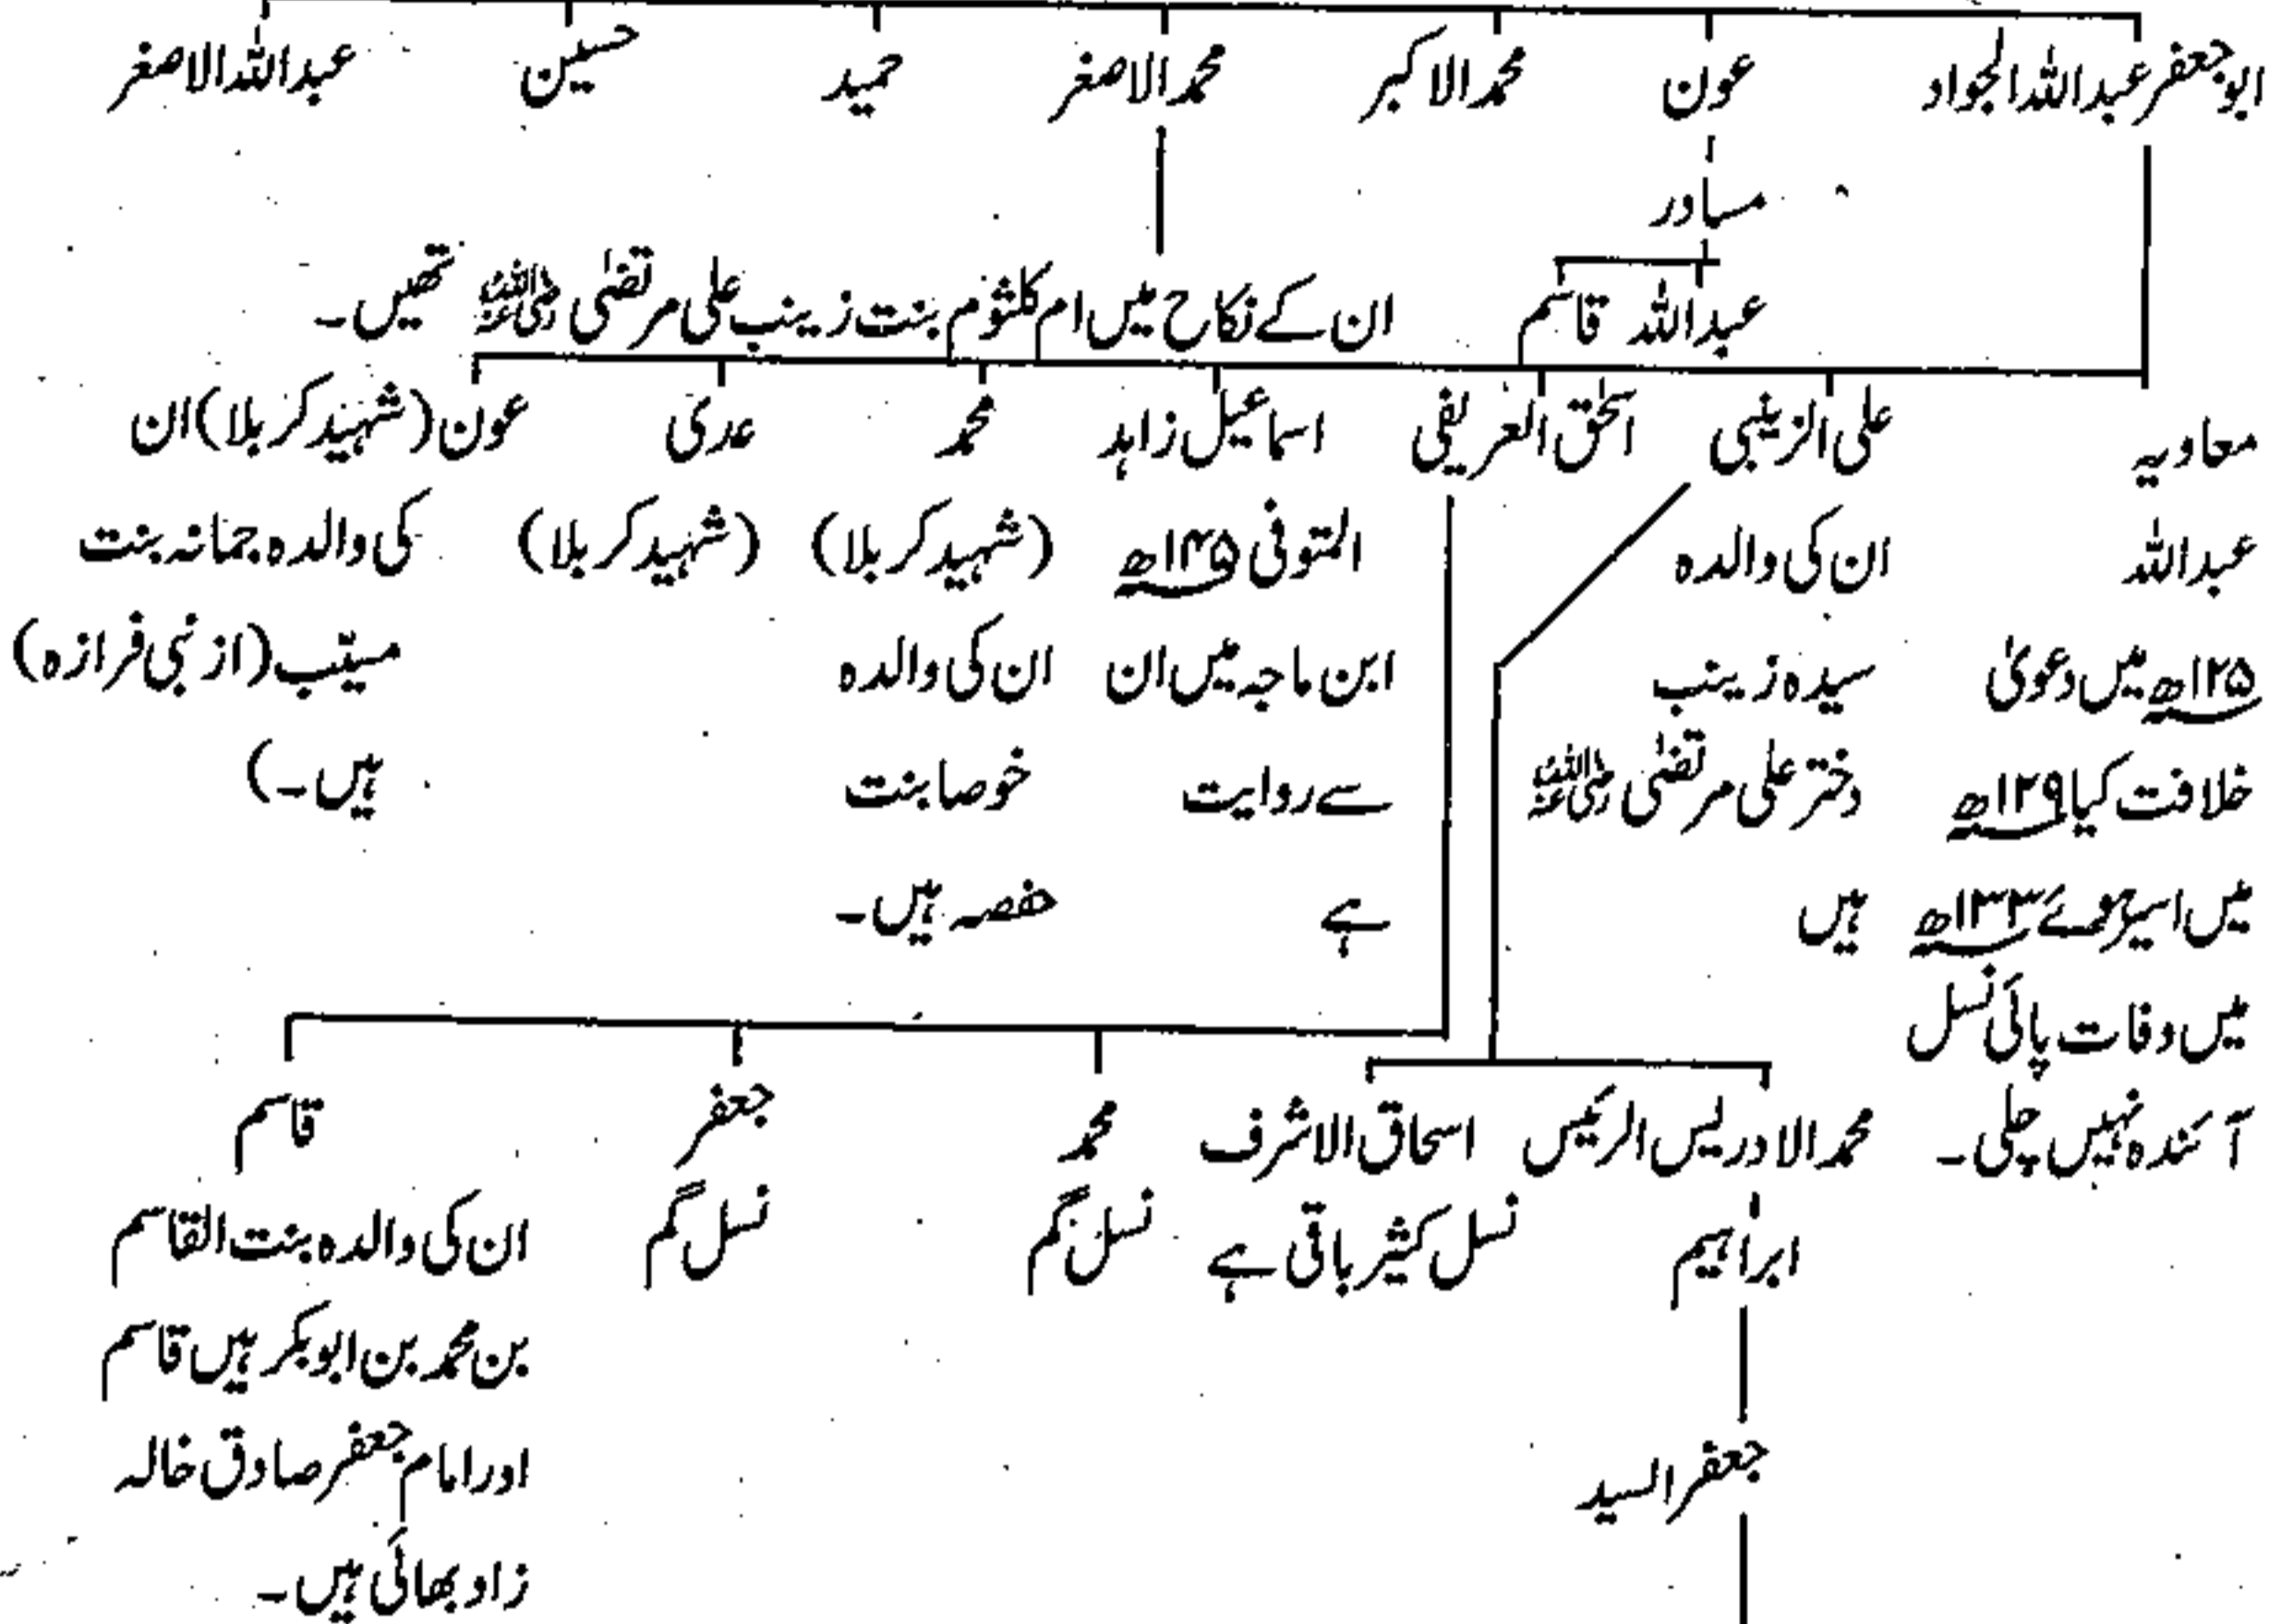 ابوجعفر عبداللہ الجواد عون محمد الاکبر محمد الاصغر حمید حسین عبداللہ الاصغر
مساور
عبداللہ قاسم
ان کے نکاح میں ام کلثوم بنت زینب علی مرتضیٰ رضی اللہ عنہ تھیں۔
معاویہ
عبداللہ
۱۲۵ھ میں دعویٰ
خلافت کیا ۱۲۹ھ
میں اسیر ہوئے ۱۳۳ھ
میں وفات پائی نسل
آئندہ نہیں چلی۔
علی الزینبی
ان کی والدہ
سیدہ زینب
دختر علی مرتضیٰ رضی اللہ عنہ
ہیں
اسحٰق العریفی
اسماعیل زاہد
المتوفی ۱۴۵ھ
ابن ماجہ میں ان
سے روایت
ہے
محمد
(شہید کربلا)
ان کی والدہ
خوصا بنت
حفصہ ہیں۔
عدی
(شہید کربلا)
عون (شہید کربلا) ان
کی والدہ جمانہ بنت
مسیّب (از نبی فرازہ)
ہیں۔)
محمد الادریس الرئیس
ابراہیم
جعفر السید
اسحاق الاشرف
نسل کثیر باقی ہے
محمد
نسل گم
جعفر
نسل گم
قاسم
ان کی والدہ بنت القاسم
بن محمد بن ابوبکر ہیں قاسم
اور امام جعفر صادق خالہ
زاد بھائی ہیں۔